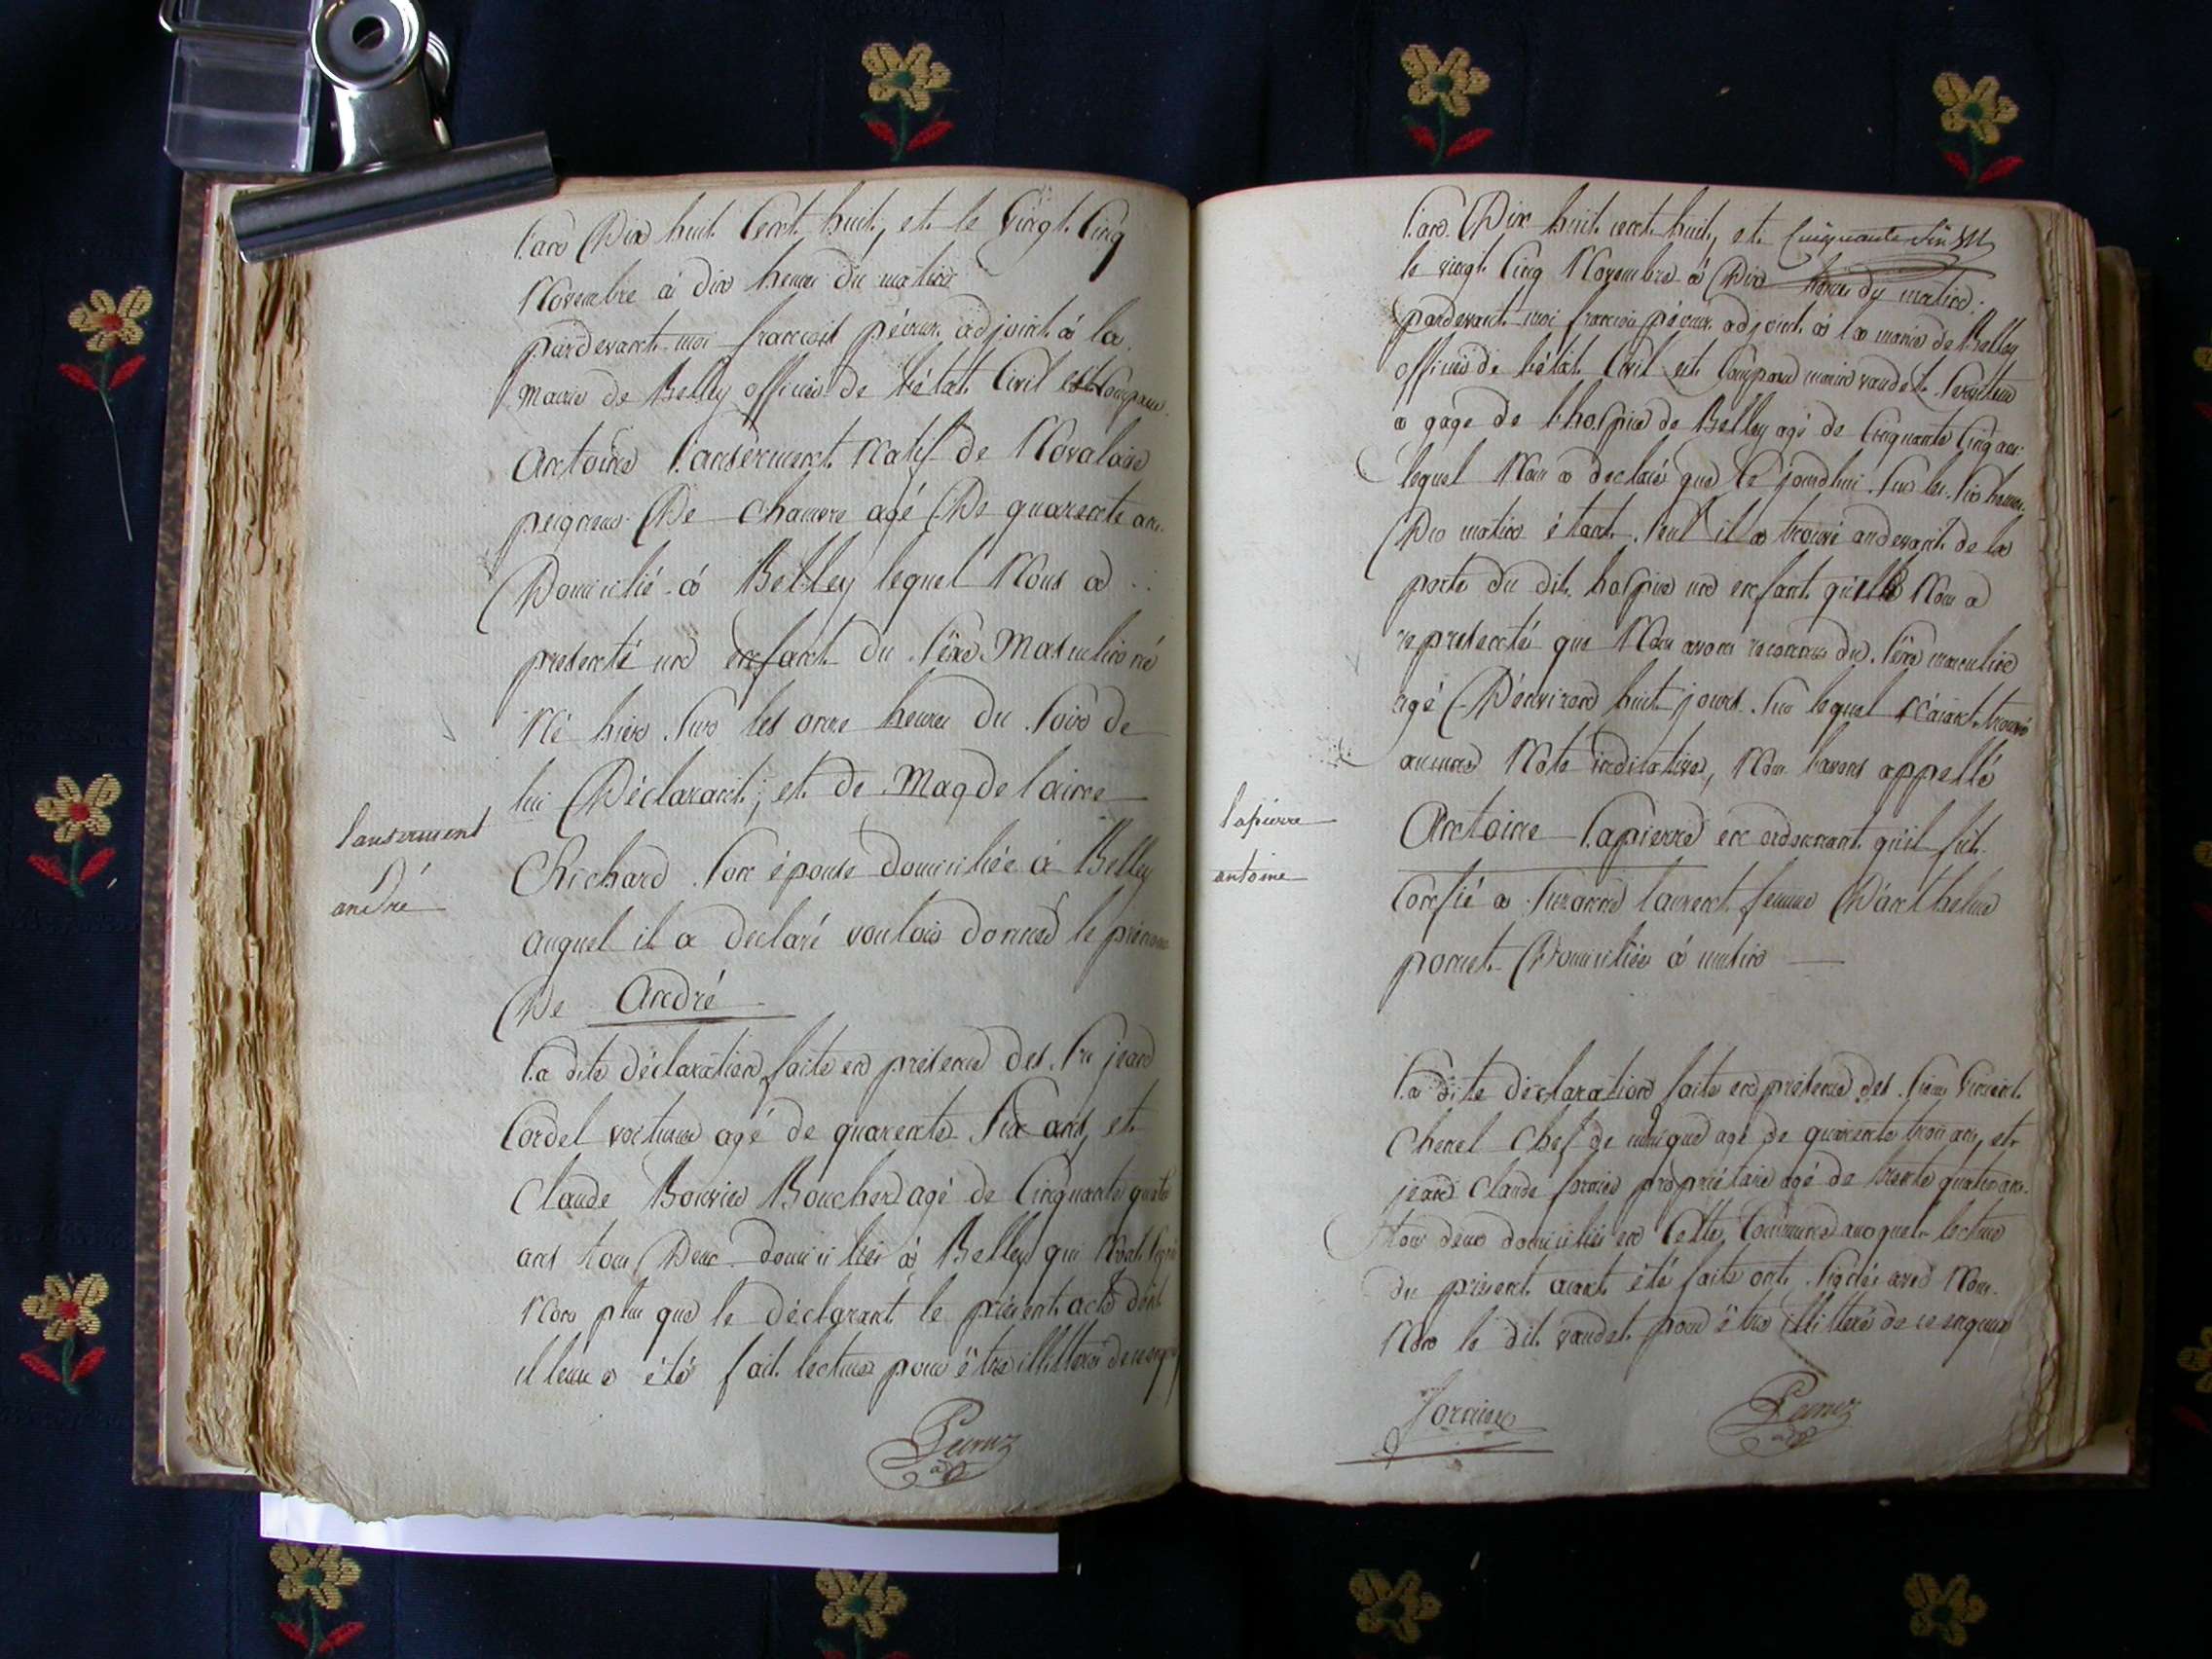 l'an Dix huit Cent huit, et le Vingt Cinq
Novembre à dix heures du matin
pardevant moi françois péeurs adjoint à la
mairie de Belley officier de l'état Civil est Comparu
Antoine lanserment Natif de Novalaise
peigneur De Chanvre agé De quarente ans
Domicilié à Belley lequel Nous a
presenté un enfant du Séxe Masculin né
Né hier Sur les onze heures du Soir de
lui Déclarant, et de Magdelaine
Richard Son épouse domiciliée à Belley
auquel il a declaré vouloir donner le prénom
De André
lanserment
andré
la dite déclaration faite en présence des Srs jean
Cordel voiturier agé de quarente Six ans, et
Claude Bouvier Boucher agé de Cinquante quatre
ans tous Deux domiciliés à Belley qui N'ont Signé
Non plus que le déclarant le présent acte dont
il leur a été fait lecture pour être illitérés de ce enquis
l'an Dix huit cent huit, et
le vingt Cinq Novembre à Dix heures du matin
pardevant moi françois péeurs adjoint à la mairie de Belley
officier de l'état Civil est Comparu vaudet Serviteur
a gage de l'hospice de Belley agé de Cinquante Cinq ans
lequel Nous a declaré que Ce jourdhui Sur les Six heures
Du matin étant Seul il a trouvé audevant de la
porte du dit hospice un enfant qu'il Nous a
représenté que Nous avons reconnu du Séxe masculin
agé D'environ huit jours Sur lequel N'aiant trouvé
aucune Note indicative, Nous l'avons appellé
Antoine Lapierre en ordonnant qu'il fut
lapierre
antoine
Confié a Suzanne laurent femme D'anthelme
ponet Domiciliée à
la dite déclaration faite en présence des Sieurs Vincent
Chenel Chef de agé de quarente trois ans, et
jean Claude propriétaire agé de trente quatre ans
tous deux domiciliés en Cette Commune auxquels lecture
du présent aiant été faite ont Signé avec Nous
Non le dit vaudet pour être illitéré de ce enquis